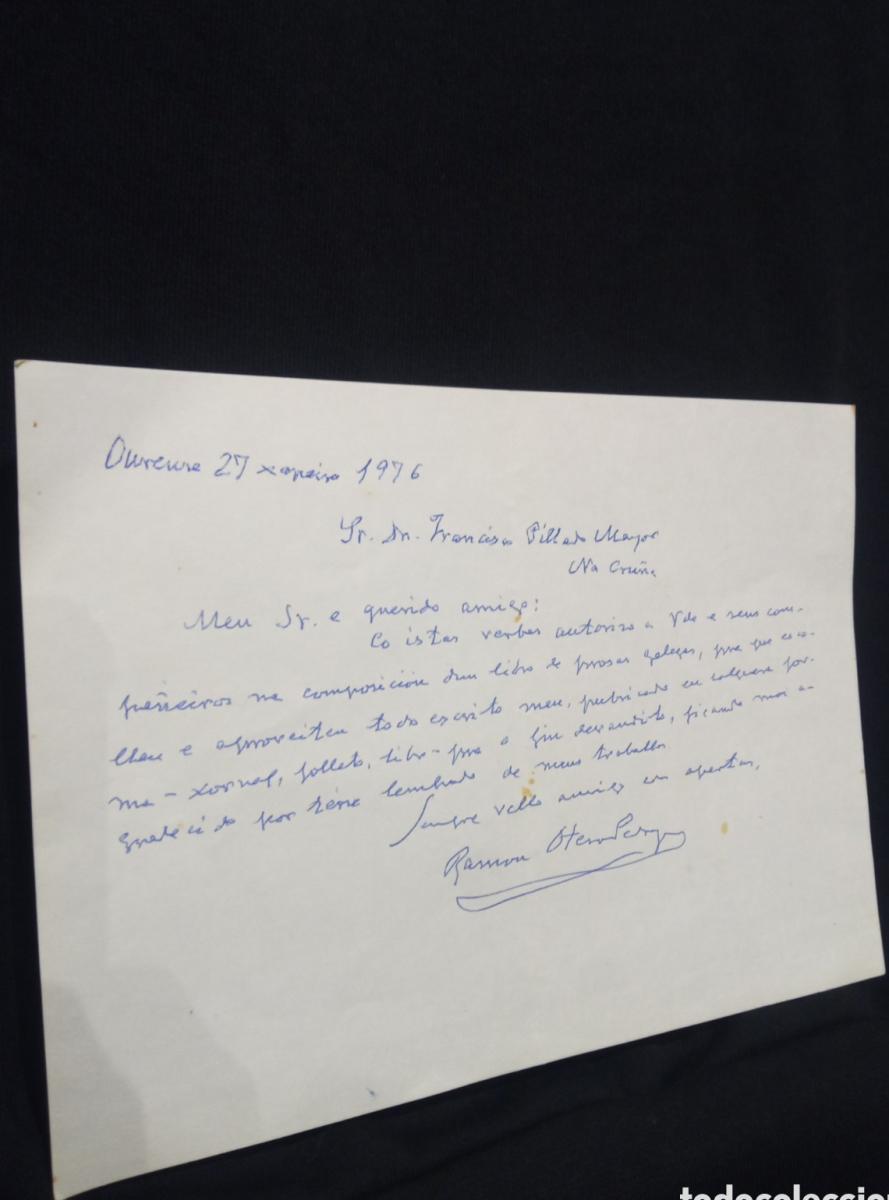 Ourense 27 xaneiro 1976
Sr. Dn. Francisco Pillado Mayor
Na Cruña
Meu Sr. e querido amigo:
Co istas verbas autorizo a Vde e seus com-
pañeiros na composición dun libro de prosas galegas, pra que esco-
llan e aproveiten todo escrito meu, pubricado en calquera for-
ma - xornal, folleto, libro - pra o fin devandito, ficando moi a-
gradecido por térse lembrado de meus traballos.
Sempre vello amigo en apertas,
Ramon Otero Pedrayo
todocoleccion